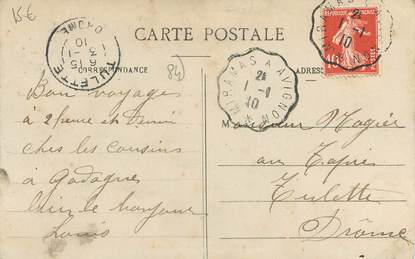 15€
CARTE POSTALE
CORRESPONDANCE
84
ADRES
TULETTE
6 15
3 -1
10
DROME
MIRAMAS A AVIGNON
2E
1 -1
10
RÉPUBLIQUE FRANÇAISE
10
Bon voyage
à 2 heure et demi
ches les cousins
à Gadagne
bien le bonjour
Louis
Monsieur Magier
au Tapis
Tulette
Drôme